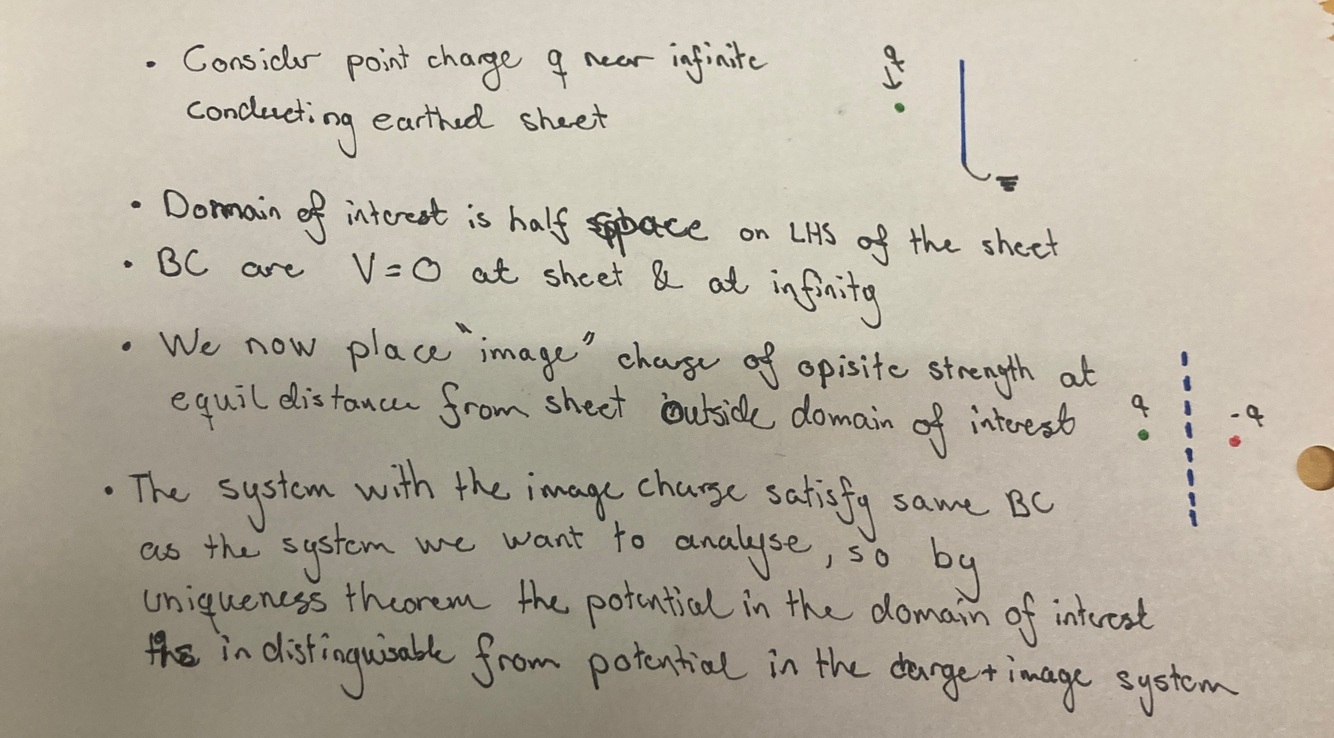 • Consider point charge q near infinite
conducting earthed sheet
q
• Domain of interest is half space on LHS of the sheet
• BC are V=0 at sheet & at infinity
• We now place "image" charge of opisite strength at
equil distance from sheet outside domain of interest
q -q
• The system with the image charge satisfy same BC
as the system we want to analyse, so by
uniqueness theorem the potential in the domain of interest
indistinguisable from potential in the charge + image system